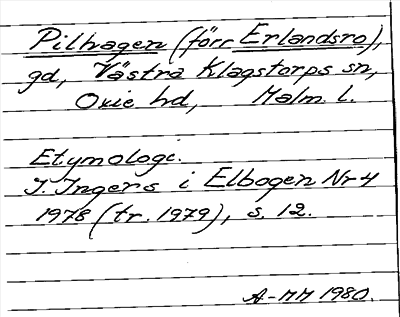 Pilhagen (förr Erlandsro),
gd, Västra Klagstorps sn,
Oxie hd, Malm. l.
Etymologi.
I. Ingers i Elbogen Nr 4
1978 (tr. 1979), s. 12.
A-MM 1980.